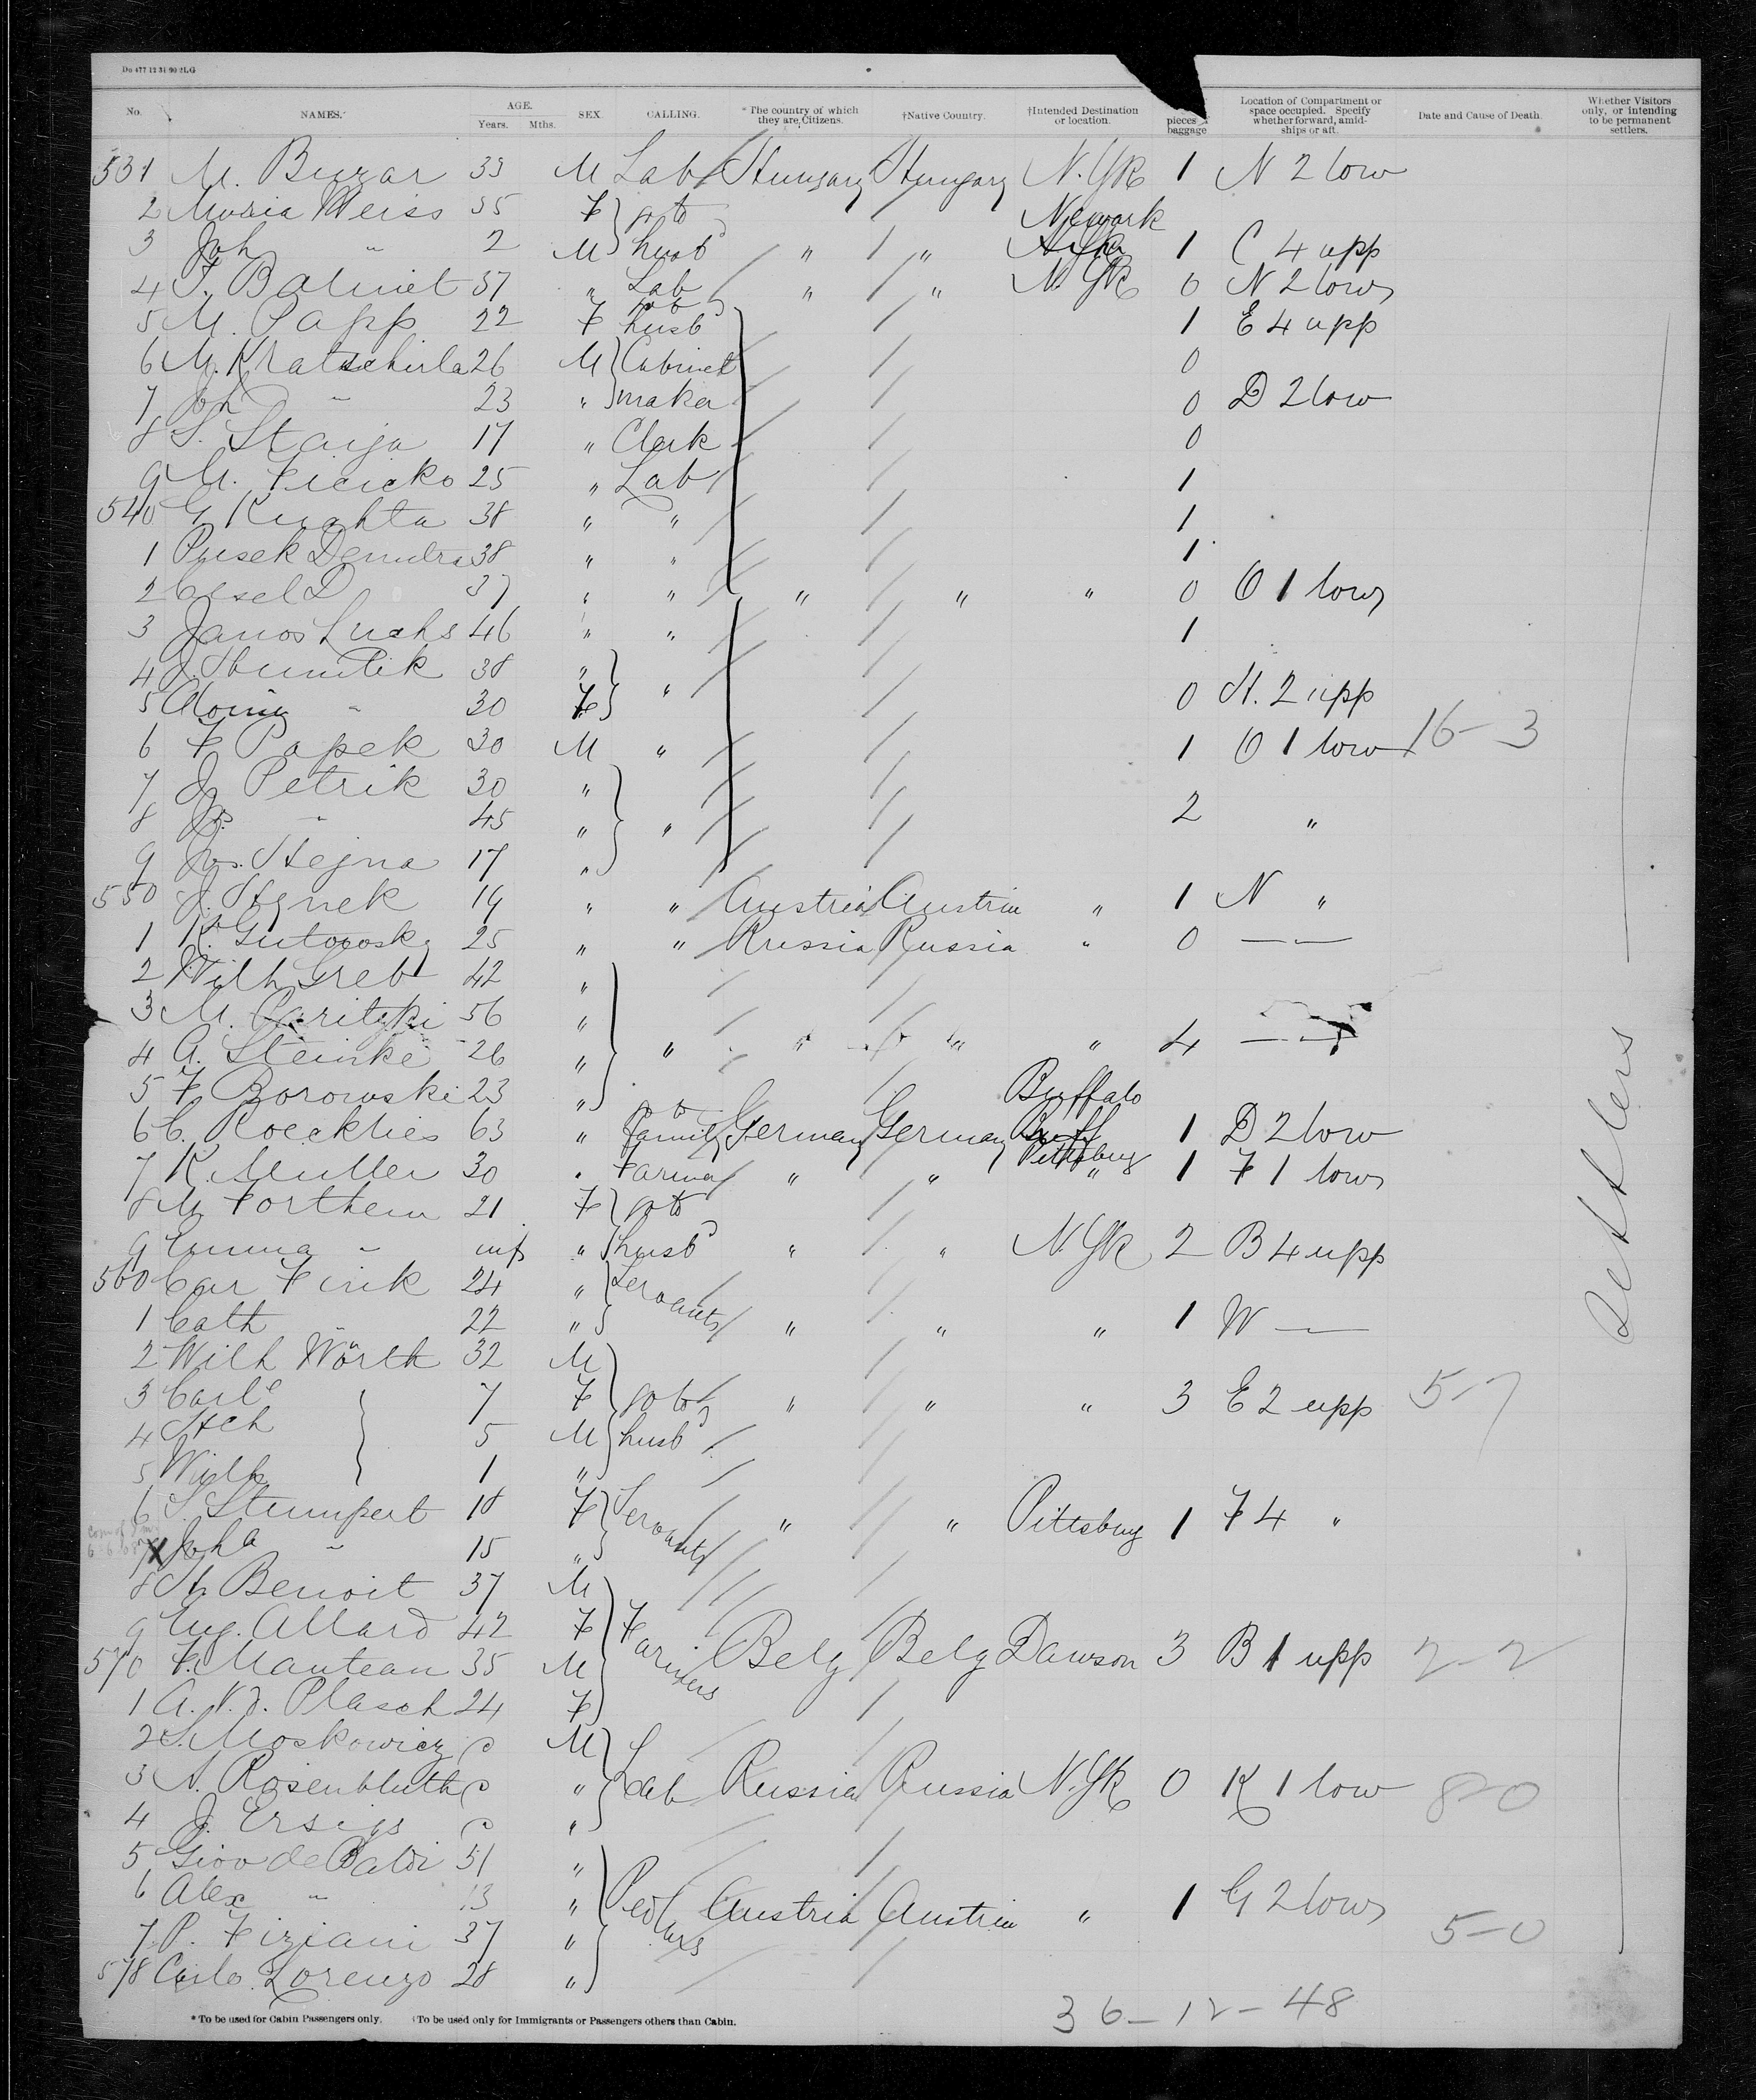 Do 477 12 31 90 2LG
No. NAMES. AGE. Years. Mths. SEX. CALLING. * The country of which they are Citizens. †Native Country. †Intended Destination or location. pieces baggage Location of Compartment or space occupied. Specify whether forward, amidships or aft. Date and Cause of Death. Whether Visitors only, or intending to be permanent settlers.
531 M. Buzar 33 M Lab Hungary Hungary N. Yk 1 N 2 low
2 Maria Weiss 35 F go to Newark
3 Joh " 2 M husb " " 1 C 4 upp
4 F. Balint 37 " Lab " " N. Yk 0 N 2 low
5 M. Papp 22 F go to husb 1 E 4 upp
6 M. 26 M Cabinet 0
7 Joh " 23 " maker 0 D 2 low
8 S. Staija 17 " Clerk 0
9 M. Ficicko 25 " Lab 1
540 G Kughta 38 " " 1
1 Pusek 38 " " 1
2 D 37 " " " " " 0 O 1 low
3 Janos Luchs 46 " " 1
4 38 "
5 " 30 F " 0 H. 2 upp
6 F Papek 30 M " 1 O 1 low 16-3
7 J. Petrik 30 "
8 " 45 " " 2 "
9 Jos. Stejna 17 "
550 J. Hynek 19 " " Austria Austria " 1 N "
1 K. Gutowosky 25 " " Russia Russia " 0 —"—
2 Wilh Greb 42 "
3 M. 56 "
4 A. Steinke 26 " " " " " 4 —"—
5 F Borowski 23 " Buffalo
6 C. Roecklies 63 " go to family Germany Germany Buff 1 D 2 low
7 K. Muller 30 " Farmer " " Pittsburg " 1 F 1 low
8 M Forthem 21 F go to
9 Emma " inf " husb " " N. Yk 2 B 4 upp
560 Car Fink 24 " Servants
1 Cath " 22 " " " " 1 W —
2 Wilh Wörth 32 M
3 Carle 7 F go to " " " 3 E 2 upp 5-7
4 Hch 5 M husb
5 Wilh 1 "
6 S. Stumpert 18 F Servants " " Pittsburg 1 F 4 "
7 X Joha " 15 "
8 H. Benoit 37 M
9 Eug. Allard 42 F Farmers Belg Belg Dawson 3 B 1 upp 2-2
570 F. Manteau 35 M
1 A. V. d. Plasch 24 F
2 S. Moskowicz M
3 A. Rosenbluth " Lab Russia Russia N. Yk 0 K 1 low 8-0
4 J. Ersigs "
5 Giov de Baldi 51 "
6 Alex " 13 " Pedlars Austria Austria " 1 G 2 low
7 P. Fiziani 37 " 5-0
578 Carlo Lorenzo 28 "
36-12-48
Settlers
* To be used for Cabin Passengers only. †To be used only for Immigrants or Passengers others than Cabin.